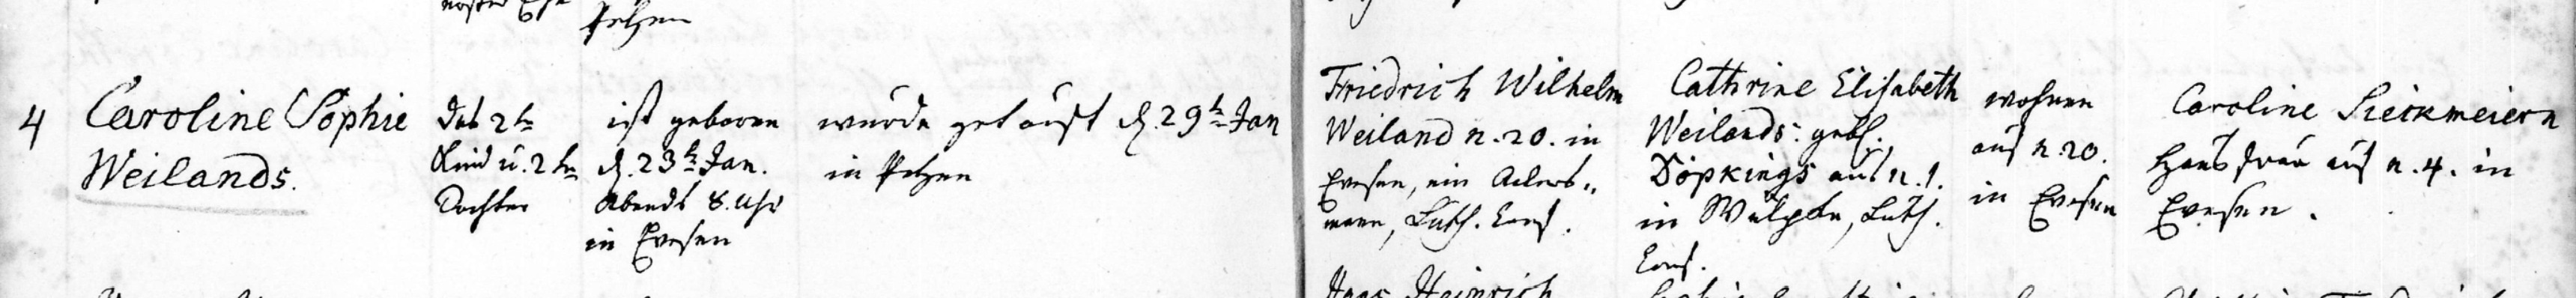 Petzen
4
Caroline Sophie
Weilands.
das 2te
Kind u. 2te
Tochter
ist geboren
d. 23t Jan.
Abends 8. Uhr
in Evesen
wurde getauft d. 29t Jan
in Petzen
Friedrich Wilhelm
Weiland n. 20. in
Evesen, ein Ackers„
mann, Luth. Conf.
Cathrine Elisabeth
Weilands: geb.
Döpkings aus n. 1.
in Wülpke, Luth.
Conf.
wohnen
auf n. 20.
in Evesen
Caroline Sieckmeiern
Hausfrau auf n. 4. in
Evesen.
Hans Heinrich